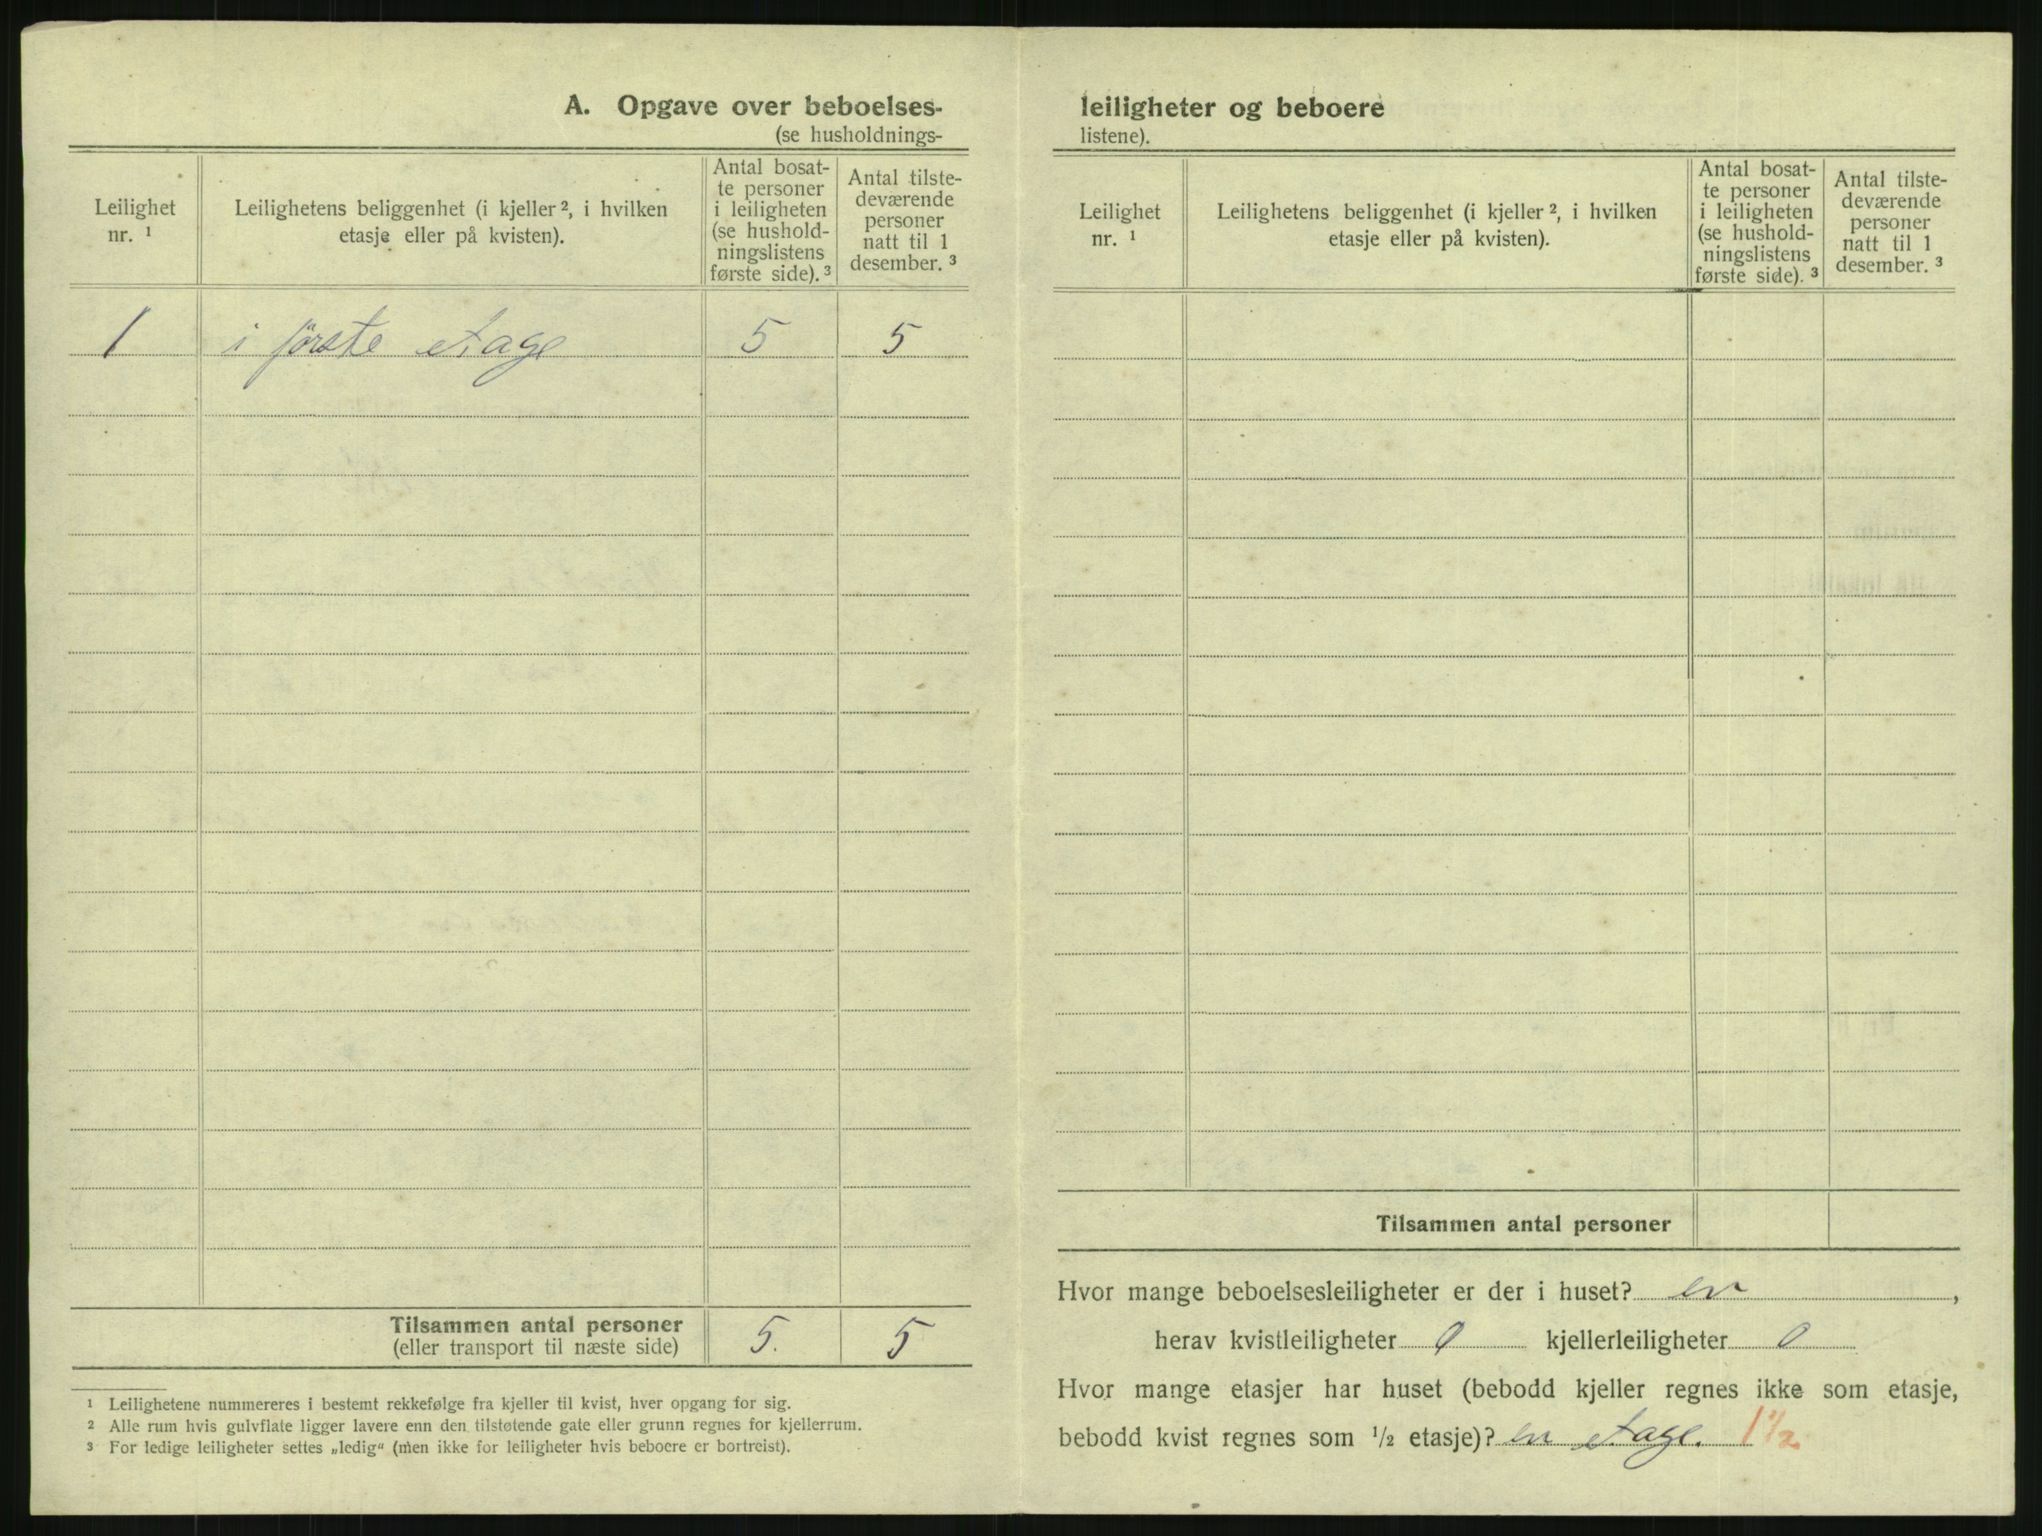 A. Opgave over beboelses-
(se husholdnings-
Leilighet
nr. ¹
Leilighetens beliggenhet (i kjeller ², i hvilken
etasje eller på kvisten).
Antal bosat-
te personer
i leiligheten
(se hushold-
ningslistens
første side). ³
Antal tilste-
deværende
personer
natt til 1
desember. ³
1 i første etage 5 5
Tilsammen antal personer
(eller transport til næste side)
5. 5
¹ Leilighetene nummereres i bestemt rekkefølge fra kjeller til kvist, hver opgang for sig.
² Alle rum hvis gulvflate ligger lavere enn den tilstøtende gate eller grunn regnes for kjellerrum.
³ For ledige leiligheter settes „ledig“ (men ikke for leiligheter hvis beboere er bortreist).
leiligheter og beboere
listene).
Leilighet
nr. ¹
Leilighetens beliggenhet (i kjeller ², i hvilken
etasje eller på kvisten).
Antal bosat-
te personer
i leiligheten
(se hushold-
ningslistens
første side). ³
Antal tilste-
deværende
personer
natt til 1
desember. ³
Tilsammen antal personer
Hvor mange beboelsesleiligheter er der i huset? en ,
herav kvistleiligheter 0 kjellerleiligheter 0
Hvor mange etasjer har huset (bebodd kjeller regnes ikke som etasje,
bebodd kvist regnes som ½ etasje)? en etage. 1½